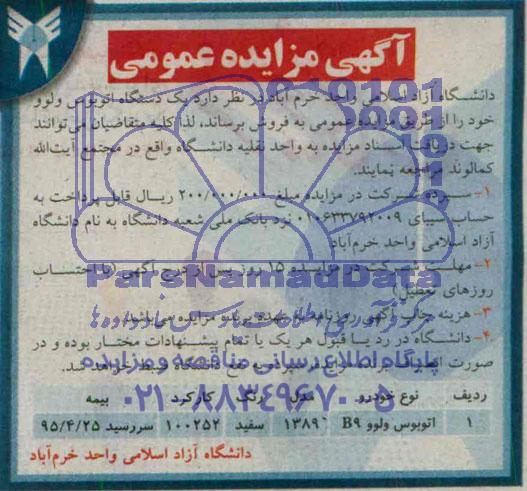 آگهی مزایده عمومی
دانشگاه آزاد اسلامی واحد خرم آباد در نظر دارد یک دستگاه اتوبوس ولوو
خود را از طریق مزایده عمومی به فروش برساند، لذا کلیه متقاضیان می‌توانند
جهت دریافت اسناد مزایده به واحد نقلیه دانشگاه واقع در مجتمع آیت‌الله
کمالوند مراجعه نمایند.
۱- سپرده شرکت در مزایده مبلغ ۲۰۰/۰۰۰/۰۰۰ ریال قابل پرداخت به
حساب سیبای ۰۱۰۶۳۳۷۹۲۰۰۹ نزد بانک ملی شعبه دانشگاه به نام دانشگاه
آزاد اسلامی واحد خرم‌آباد
۲- مهلت شرکت در مزایده ۱۵ روز پس از درج آگهی (با احتساب
روزهای تعطیل)
ParsNamadData
۳- هزینه چاپ آگهی روزنامه به عهده برنده مزایده می‌باشد.
۴- دانشگاه در رد یا قبول هر یک یا تمام پیشنهادات مختار بوده و در
صورت انصراف برنده مزایده سپرده به نفع دانشگاه ضبط خواهد شد.
پایگاه اطلاع رسانی مناقصه و مزایده
۰۲۱-۸۸۳۴۹۶۷۰-۵
ردیف نوع خودرو مدل رنگ کارکرد بیمه
۱ اتوبوس ولوو B۹ ۱۳۸۹ سفید ۱۰۰۲۵۲ سررسید ۹۵/۴/۲۵
دانشگاه آزاد اسلامی واحد خرم‌آباد